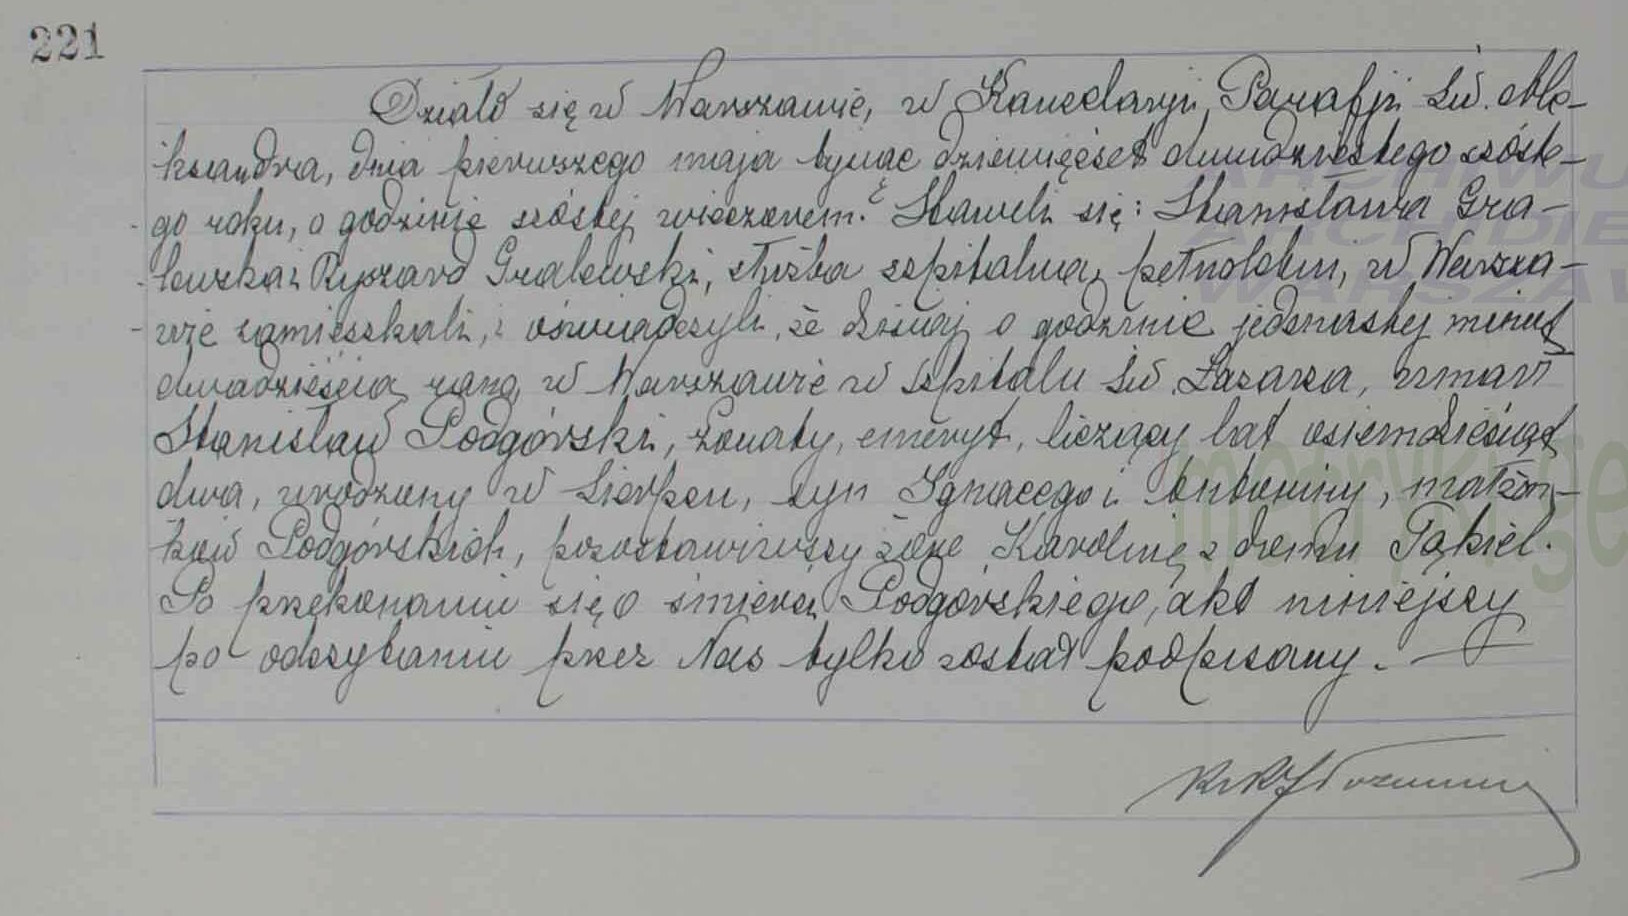 221
Działo się w Warszawie, w Kancelaryi Parafji Św. Ale-
ksandra, dnia pierwszego maja tysiąc dziewięćset dwudziestego szóste-
go roku, o godzinie szóstej wieczorem. Stawili się: Stanisława Gra-
lewska i Ryszard Gralewski, służba szpitalna, pełnoletni, w Warsza-
wie zamieszkali, i oświadczyli, że dzisiaj o godzinie jedenastej minut
dwadzieścia rano, w Warszawie w szpitalu Św. Łazarza, umarł
Stanisław Podgórski, żonaty, emeryt, liczący lat osiemdziesiąt
dwa, urodzony w Sierpcu, syn Ignacego i Antoniny, małżon-
ków Podgórskich, pozostawiwszy żonę Karolinę z domu Tąkiel.
Po przekonaniu się o śmierci Podgórskiego, akt niniejszy
po odczytaniu przez Nas tylko został podpisany.
ARCHIWU
ARCHIDIE
WARSZAW
metryki.ge